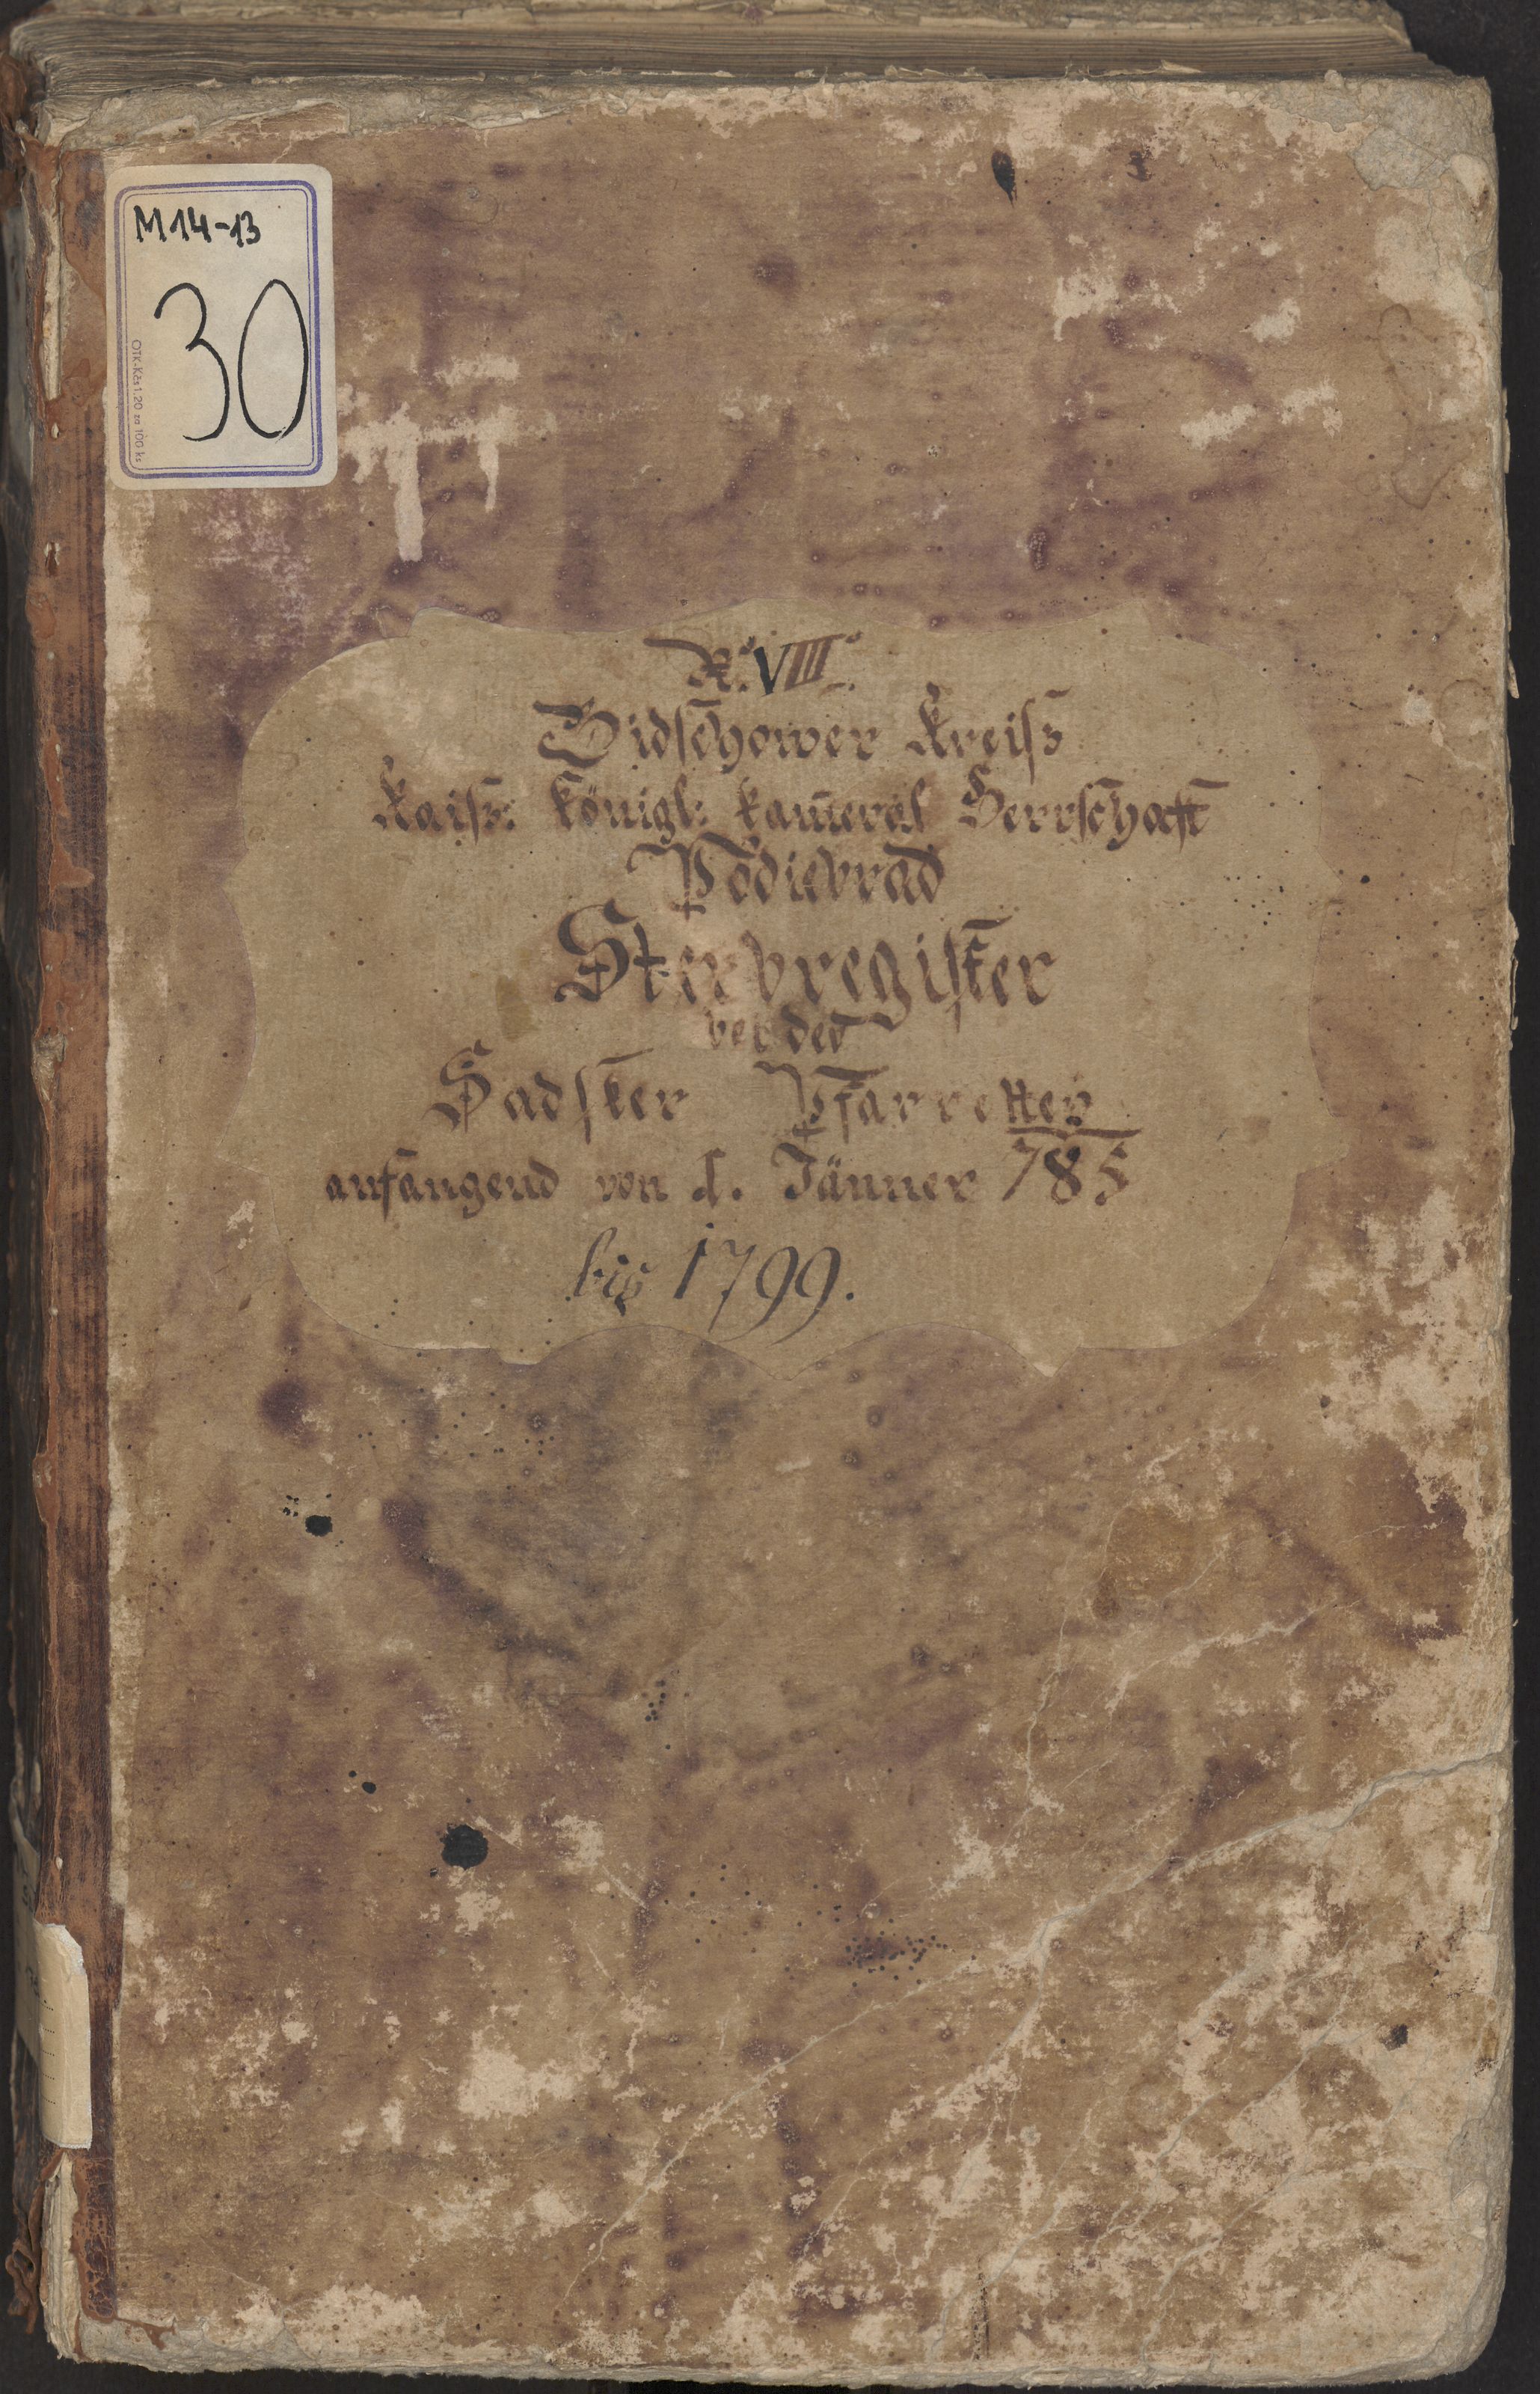 M14-13
30
OTK-Kčs 1.20 za 100 ks
N. VIII.
Bidschower Kreiß
Kaiß: Königl: kam̄eral Herrschaft
Podiebrad
Sterbregister
bei der
Sadsker Pfarrettey
anfangend von 1. Jänner 785
bis 1799.